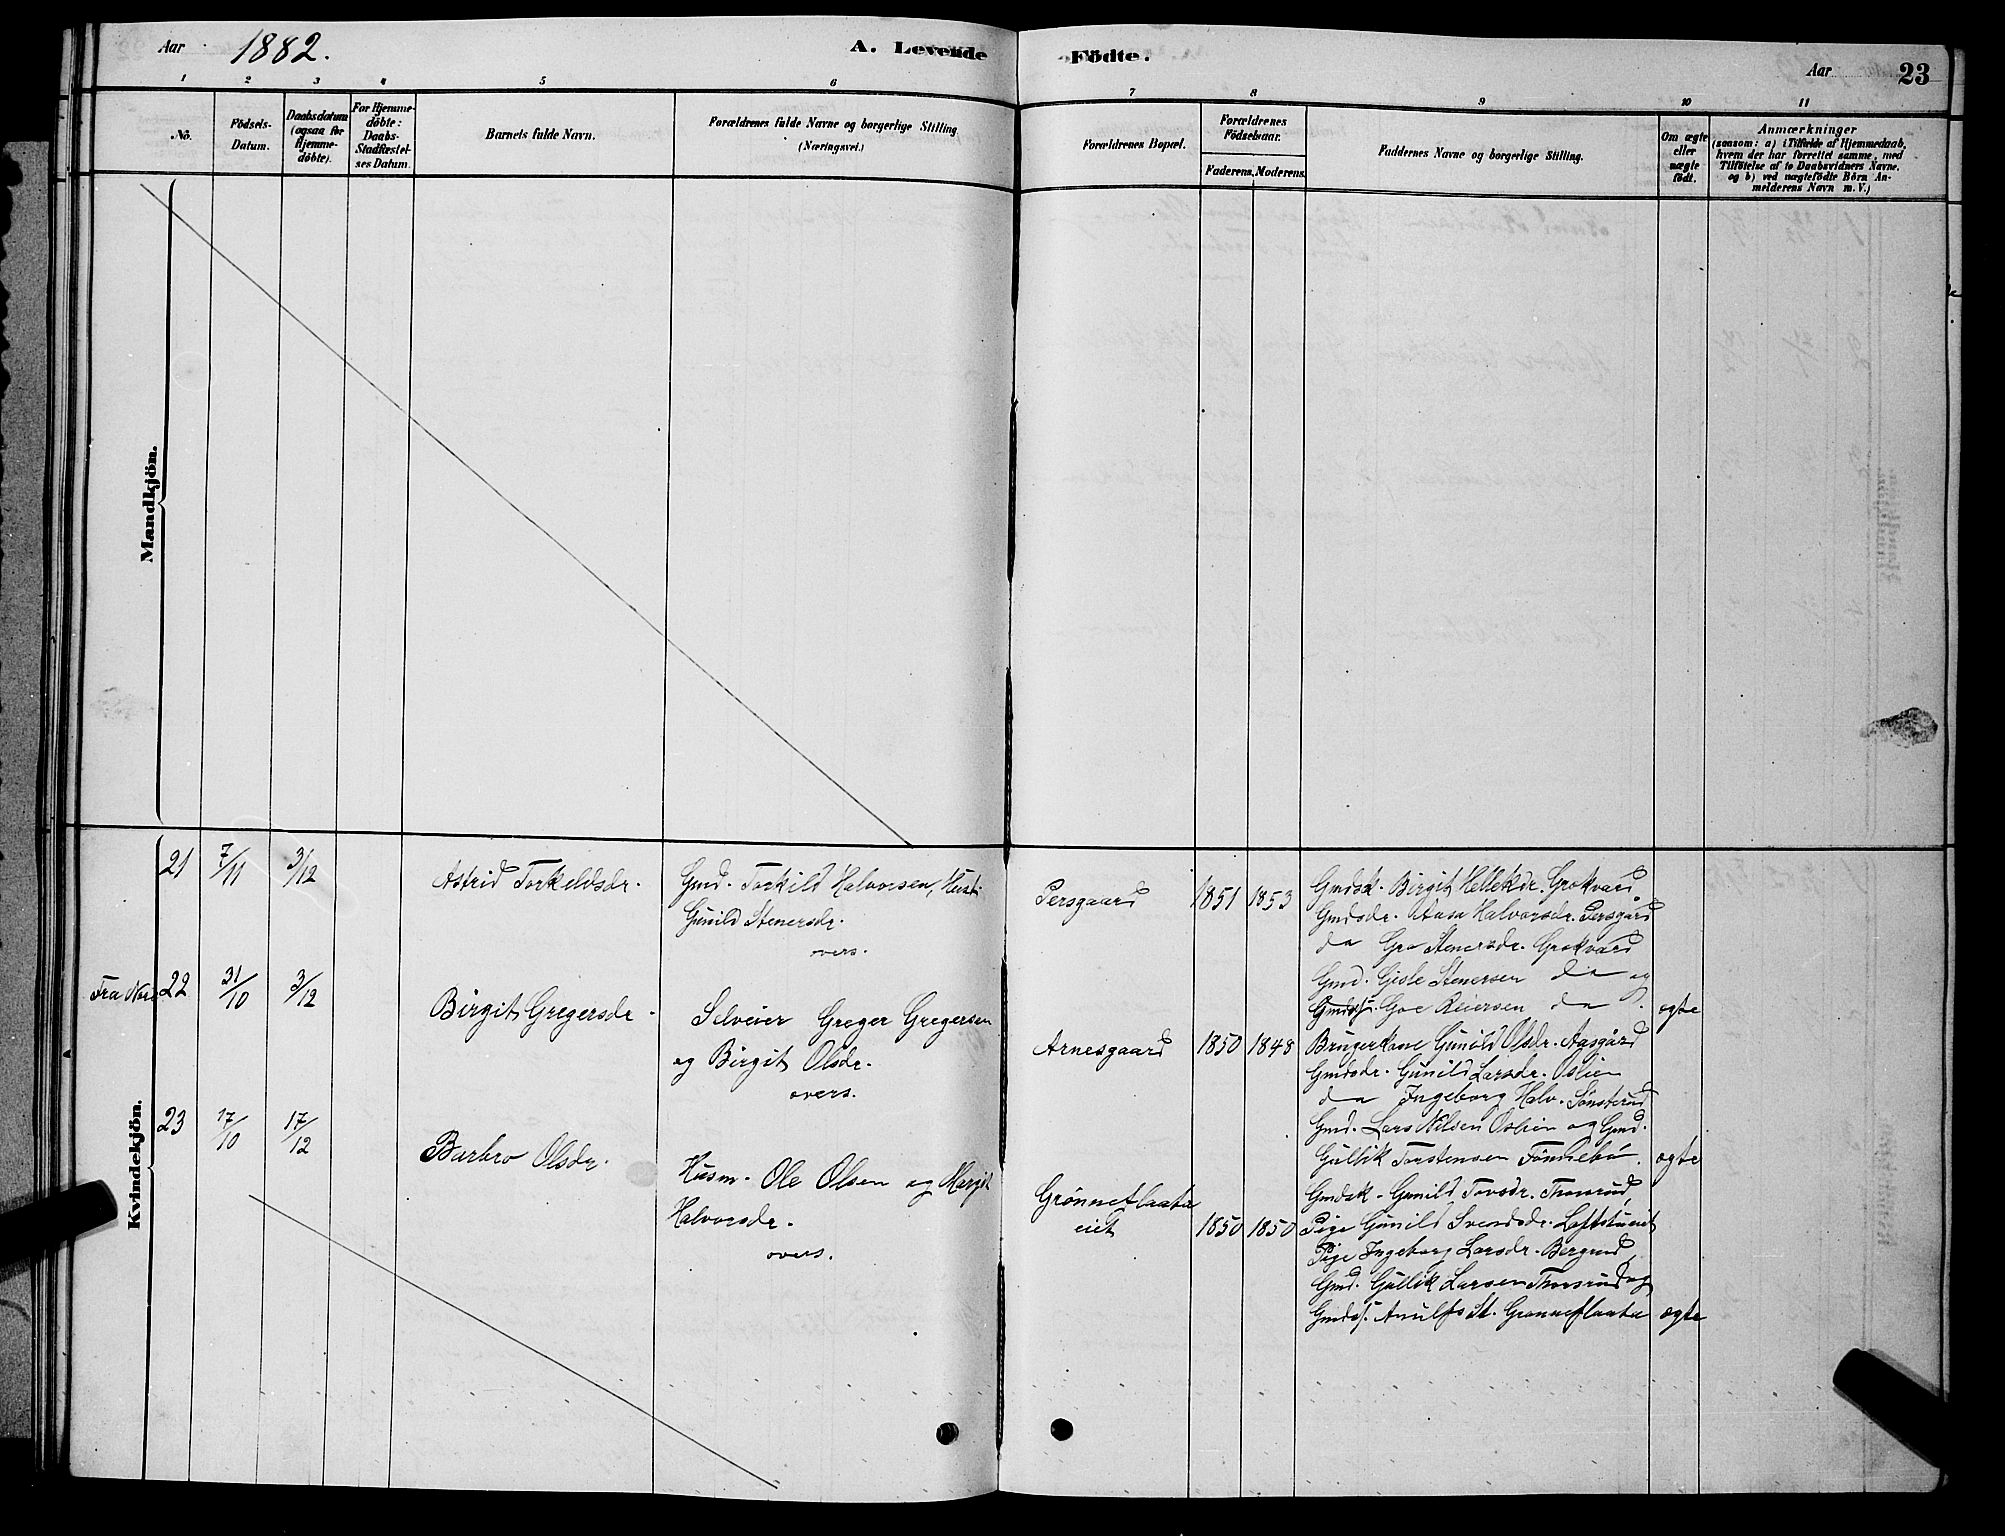 Aar 1882. A. Levende Födte. Aar 23
1 2 3 4 5 6 7 8 9 10 11
No.
Födsels-
Datum.
Daabsdatum
(ogsaa for
Hjemme-
döbte).
For Hjemme-
döbte:
Daabs-
Stadfæstel-
ses Datum.
Barnets fulde Navn.
Forældrenes fulde Navne og borgerlige Stilling
(Næringsvei.)
Forældrenes Bopæl.
Forældrenes
Födselsaar.
Faderens. Moderens.
Faddernes Navne og borgerlige Stilling.
Om ægte
eller
uægte
födt.
Anmærkninger
(saasom: a) i Tilfælde af Hjemmedaab,
hvem der har forrettet samme, med
Tilföielse af to Daabsvidners Navne,
og b) ved uægtefödte Börn An-
melderens Navn m. V.)
Mandkjön.
Kvindekjön.
21 7/11 3/12 Astrid Torkeldsdr. Gmd. Torkild Halvorsen, Hust.
Gunild Stenersdr.
overs.
Persgaard 1851 1853 Gmdsk. Birgit Hellekdr. Grokvard
Gmdsdr. Aasa Halvorsdr. Persgård
do Gro Stenersdr. Grokvard
Gmd. Gisle Stenersen do og
Gmdss. Goe Reiersen do. ægte
Fra Nore 22 31/10 3/12 Birgit Gregersdr. Selveier Greger Gregersen
og Birgit Olsdr.
overs.
Arnesgaard 1850 1848 Brugerkone Gunild Olsdr. Aasgård
Gmdsdr. Gunild Larsdr. Oslien
do Ingeborg Halv. Sønsterud
Gmd. Lars Nilsen Oslien og Gmd.
Gullik Torstensen Fønnebø. ægte
23 17/10 17/12 Barbro Olsdr. Husm. Ole Olsen og Margit
Halvorsdr.
overs.
Grønneflaata
eiet 1850 1850
Gmdsk. Gunild Tovsdr. Thorsrud,
Pige Gunild Svendsdr. Loftstueiet
Pige Ingeborg Larsdr. Bergrud,
Gmd. Gullik Larsen Thorsrud og
Gmdss. Arnulf St. Grønneflaata ægte